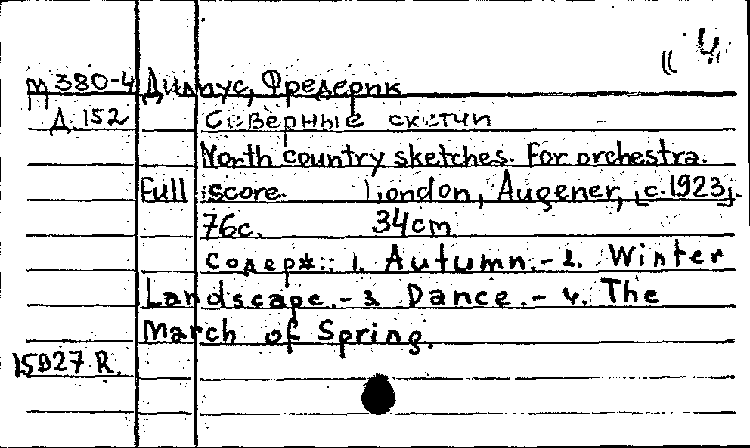 "4"
м380-4 Дилиус, Фредерик
Д.152 Северные скетчи
North country sketches. For orchestra.
Full score. London, Augener, [c.1923].
76с. 34cm
Содерж.: 1. Autumn.- 2. Winter
Landscape.- 3. Dance.- 4. The
March of Spring.
15927 R.